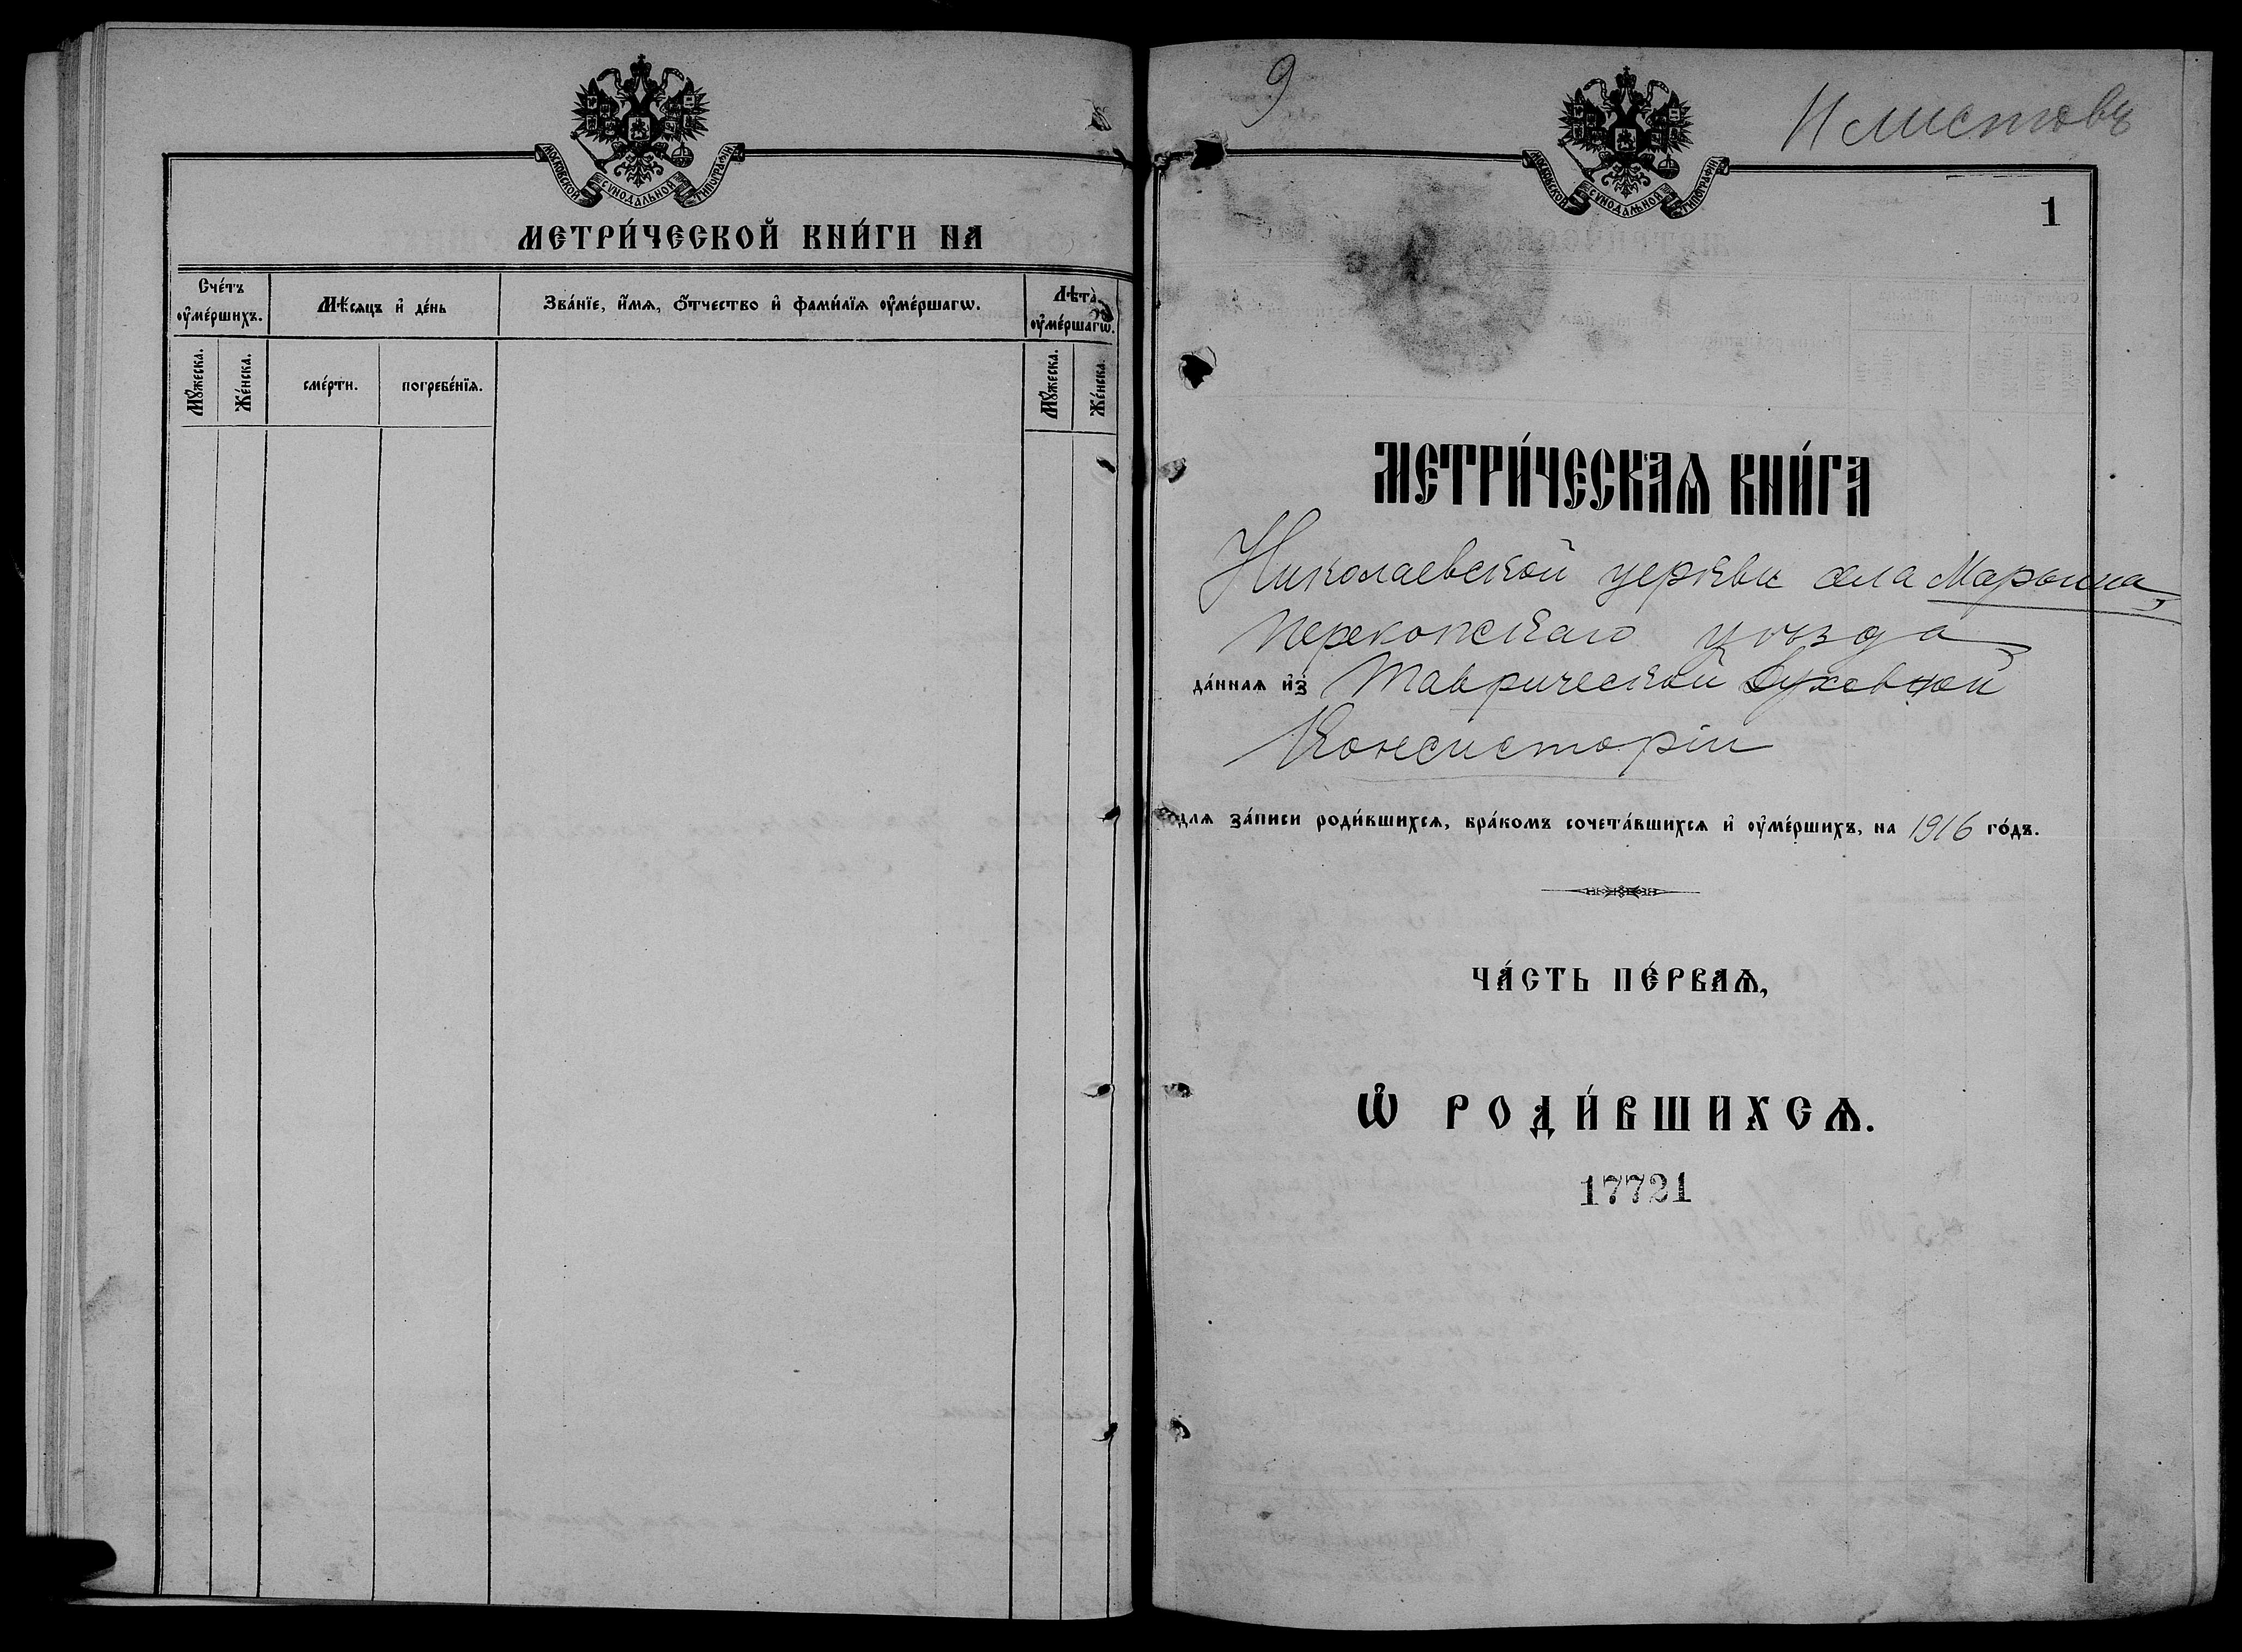 МОСКОВСКОЙ СѴНОДАЛЬНОЙ ТИПОГРАФІИ
МЕТРИ́ЧЕСКОЙ КНИ́ГИ НА
Сче́тъ ᲂу҆ме́ршихъ.
Мѣ́сяцъ и҆ де́нь
Зва́нїе, и҆́мѧ, ѻ҆́тчество и҆ фами́лїѧ ᲂу҆ме́ршагѡ.
Лѣта̀ ᲂу҆ме́ршагѡ.
Мꙋ́жеска.
Же́нска.
сме́рти.
погребе́нїѧ.
Мꙋ́жеска.
Же́нска.
9
11 листовъ
МОСКОВСКОЙ СѴНОДАЛЬНОЙ ТИПОГРАФІИ
1
МЕТРИ́ЧЕСКАѦ КНИ́ГА
Николаевской церкви села Марьина,
Перекопскаго уѣзда
да́ннаѧ и҆з̾ Таврической Духовной
Консисторіи
длѧ за́писи роди́вшихсѧ, бра́комъ сочета́вшихсѧ и҆ ᲂу҆ме́ршихъ, на 1916 го́дъ.
ЧА́СТЬ ПЕ́РВАѦ,
Ѡ҆ РОДИ́ВШИХСѦ.
17721